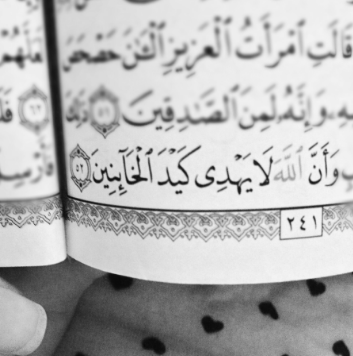 قَالَتِ ٱمْرَأَتُ ٱلْعَزِيزِ ٱلْـَٰٔنَ حَصْحَصَ
وَإِنَّهُۥ لَمِنَ ٱلصَّٰدِقِينَ ٥١ ذَٰلِكَ
وَأَنَّ ٱللَّهَ لَا يَهْدِى كَيْدَ ٱلْخَآئِنِينَ ٥٢
٢٤١